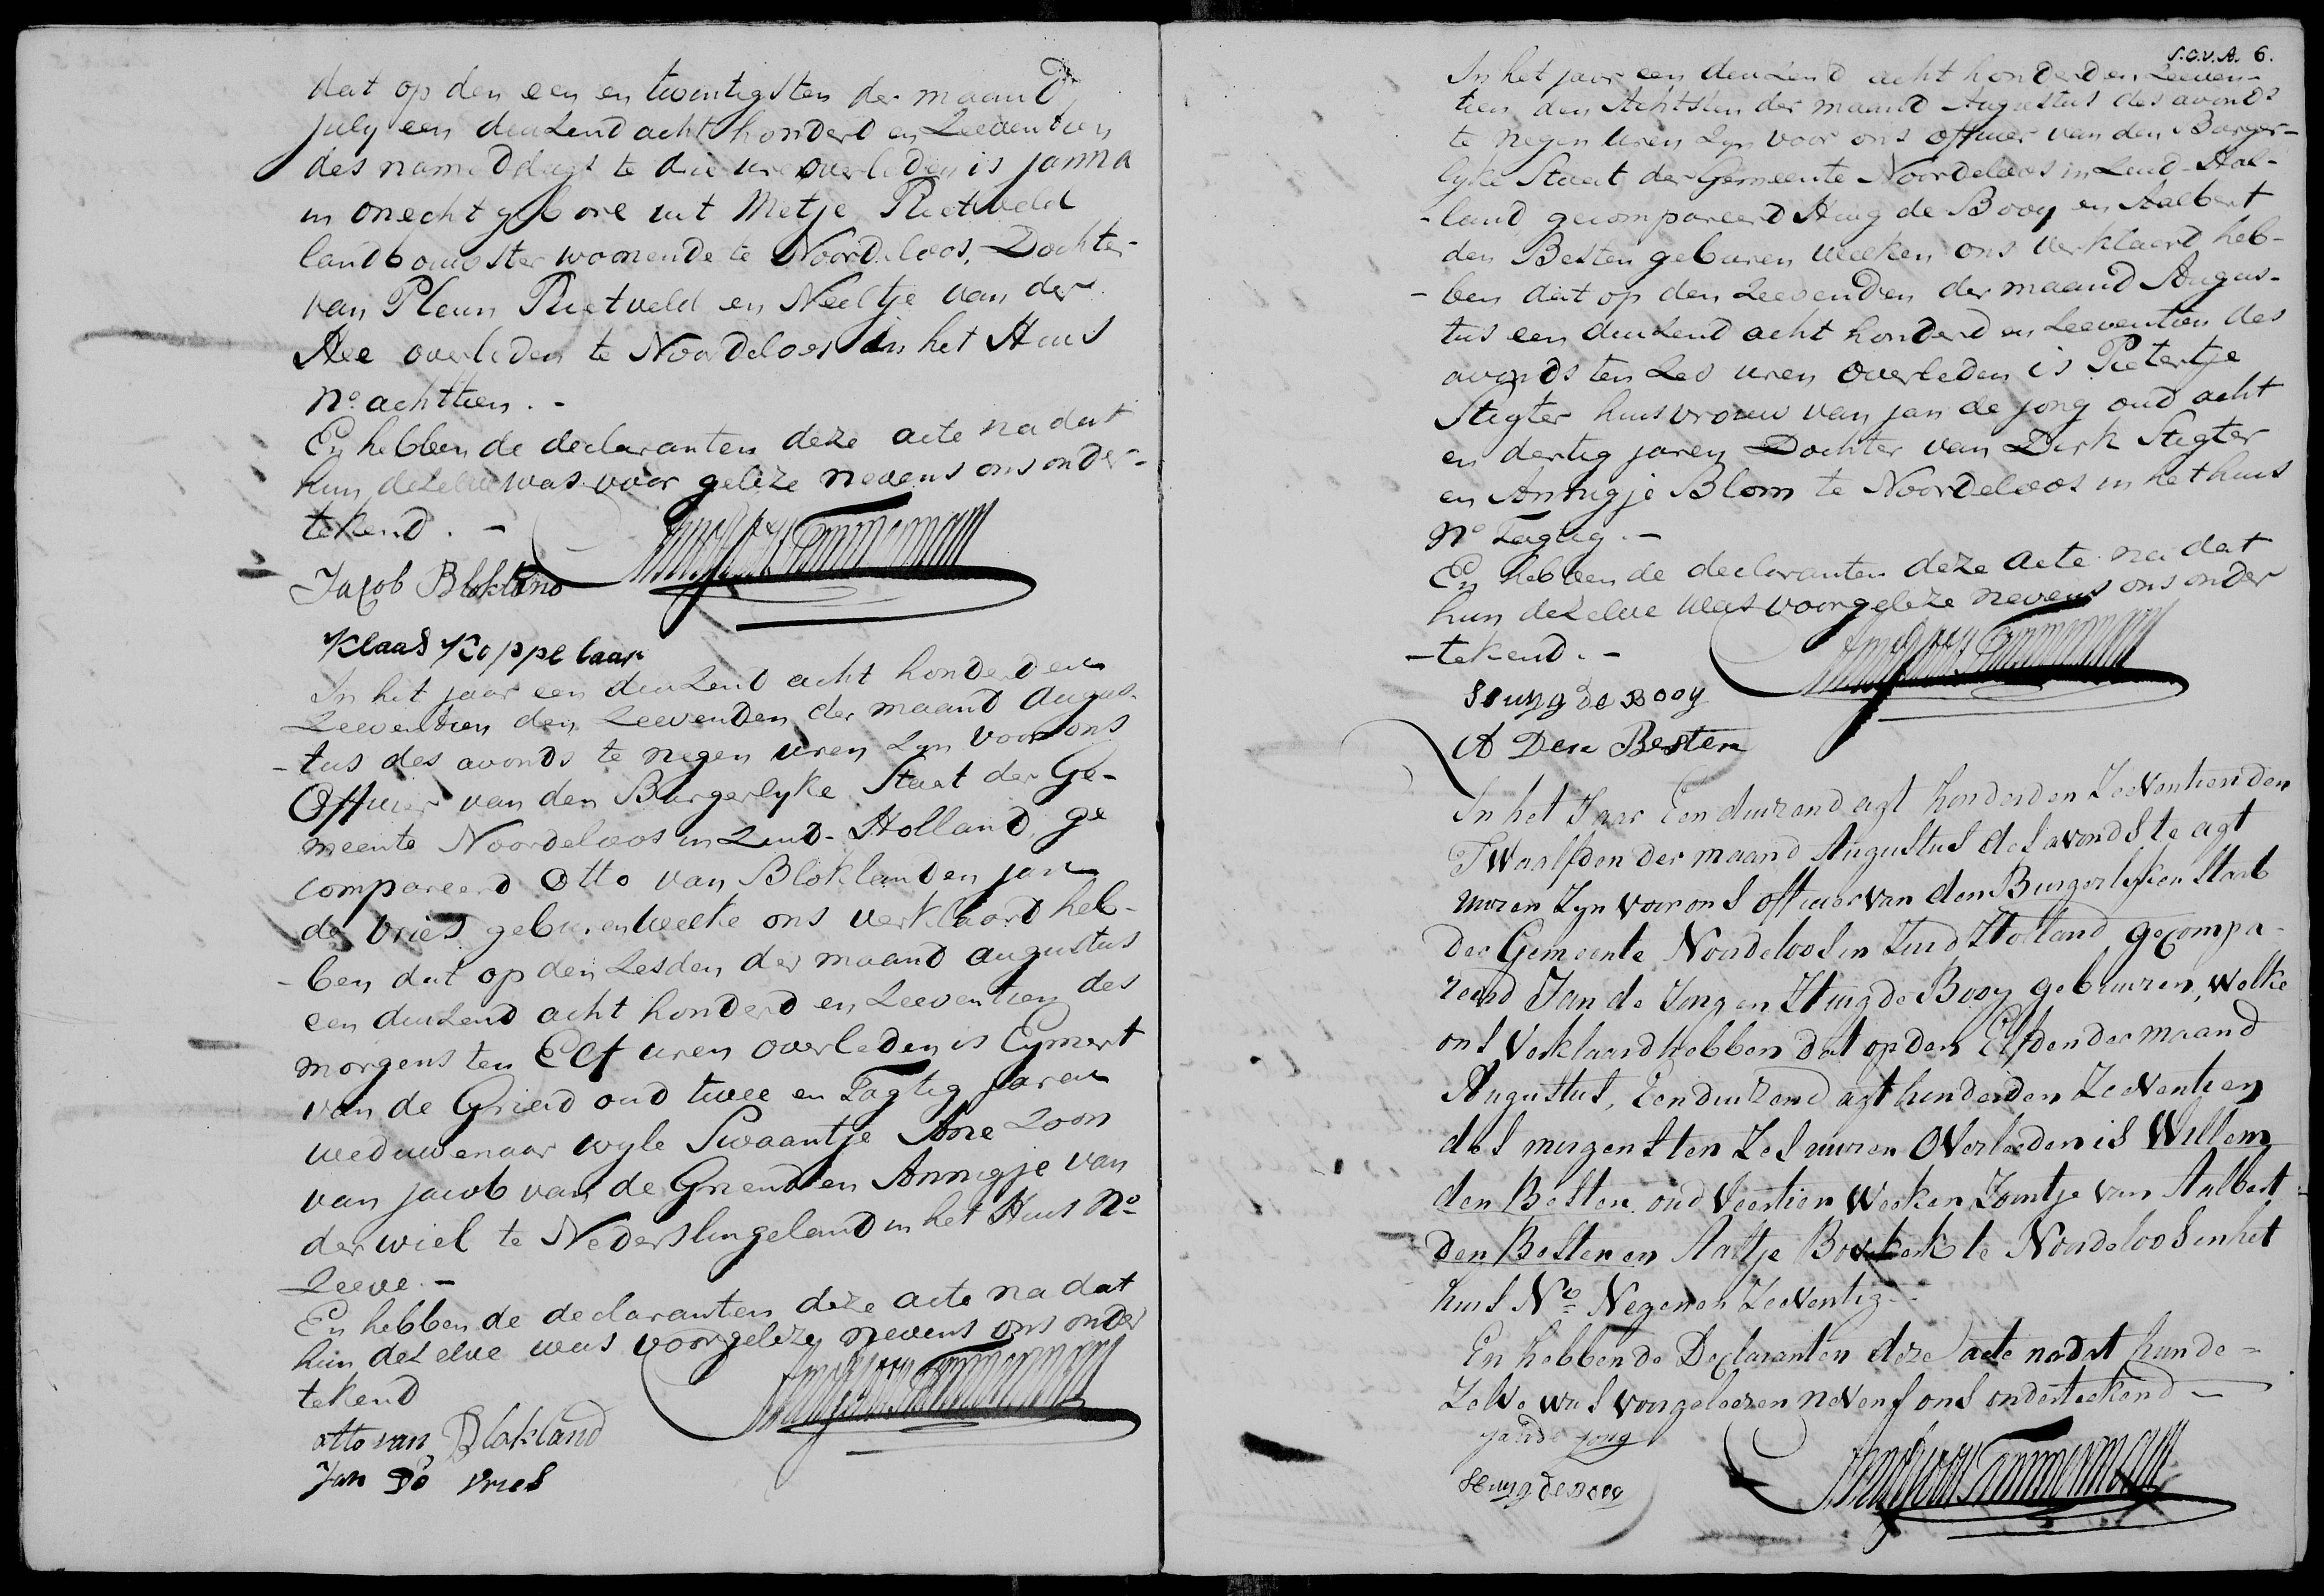 dat op den een en twintigsten der maand
july een duizend acht honderd en zeeventien
des namiddags te drie ure overleden is janna
in onecht gebore uit Metje Rietveld
landbouwster woonende te Noordeloos, Dochter
van Pleun Rietveld en Neeltje van der
Hee overleden te Noordeloos in het Huis
No. achttien. -
En hebben de declaranten deze acte na dat
hun dezelve was voor geleze nevens ons onder-
tekend. -
Jacob Blokland
Klaas Koppelaar
In het jaar een duizend acht honderd en
zeeventien den zeevenden der maand Augus-
-tus des avonds te negen uren zyn voor ons
Officier van den Burgerlyke Staat der Ge-
meente Noordeloos in Zuid-Holland, ge
compareerd Otto van Blokland en jan
de Vries geburen welke ons verklaard heb-
-ben dat op den zesden der maand augustus
een duizend acht honderd en zeeventien des
morgens ten Elf uren overleden is Eymert
van de Griend oud twee en Tagtig jaren
weduwenaar wyle Swaantje Ane zoon
van jacob van de Griend en Annigje van
der wiel te Nederslingeland in het Huis No
zeeve. -
En hebben de declaranten deze acte na dat
hun dezelve was voorgeleze nevens ons onder
tekend
otto van Blokland
Jan De Vries
S.O.V.A. 6.
In het jaar een duizend acht honderd en zeeven-
tien den Achtsten der maand Augustus des avonds
te negen uren zyn voor ons officier van den Burger-
lyke Staat der Gemeente Noordeloos in Zuid-Hol-
-land gecompareerd Huig de Booy en Aalbert
den Besten geburen welken ons verklaard heb-
-ben dat op den zeevenden der maand Augus-
tus een duizend acht honderd en zeeventien des
avonds ten zes uren overleden is Pietertje
Stegter huisvrouw van jan de jong oud acht
en dertig jaren Dochter van Dirk Stegter
en Annigje Blom te Noordeloos in het huis
No Tagtig. -
En hebben de declaranten deze acte na dat
hun dezelve was voorgeleze nevens ons onder
-tekend. -
Huyg de Booy
A Den Besten
In het Jaar Een duizend agt honderd en Zeeventien den
Twaalfden der maand Augustus des avonds te agt
uuren Zyn voor ons officier van den Burgerlyken Staat
der Gemeente Noordeloos in Zuid Holland gecompa-
reerd Jan de Jong en Huig de Booy gebuuren, welke
ons Verklaard hebben dat op den Elfden der maand
Augustus, Een duizend agt honderd en Zeeventien
des morgens ten Zes uuren Overleeden is Willem
den Besten oud Veertien Weeken Zoontje van Aalbert
den Besten en Aaltje te Noordeloos in het
huis No. Negen en Zeeventig. -
En hebben de Declaranten deze acte na dat hun de-
Zelve was voorgeleezen nevens ons onderteekend -
jan de jong
Huyg de Booy